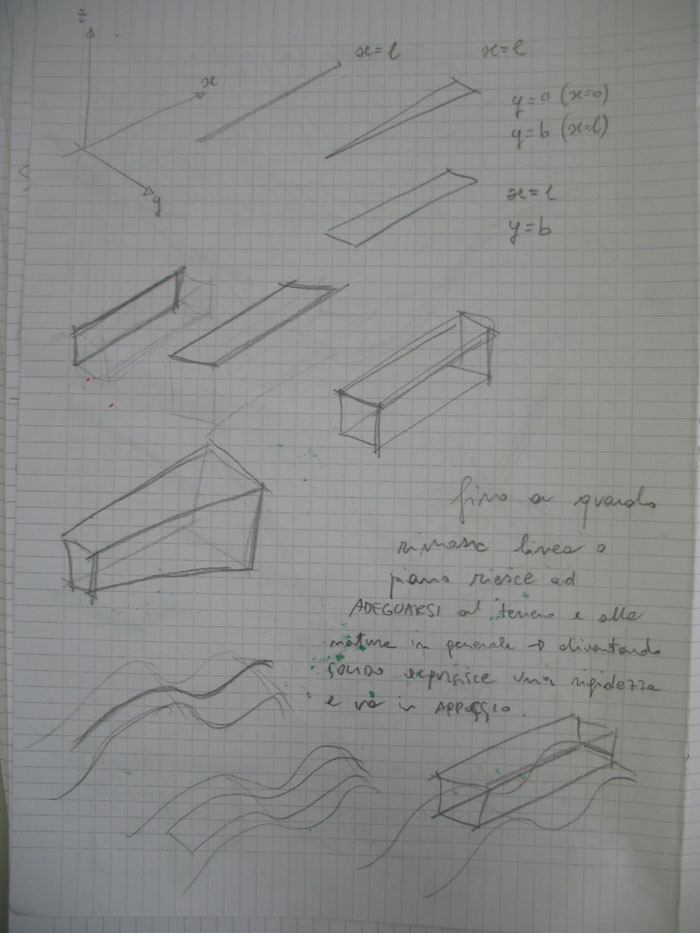 z
x
y
x=l
x=l
y=0 (x=0)
y=b (x=l)
x=l
y=b
fino a quando
rimane linea o
piano riesce ad
ADEGUARSI al terreno e alla
natura in generale → diventando
solido acquisisce una rigidezza
e va in APPOGGIO.